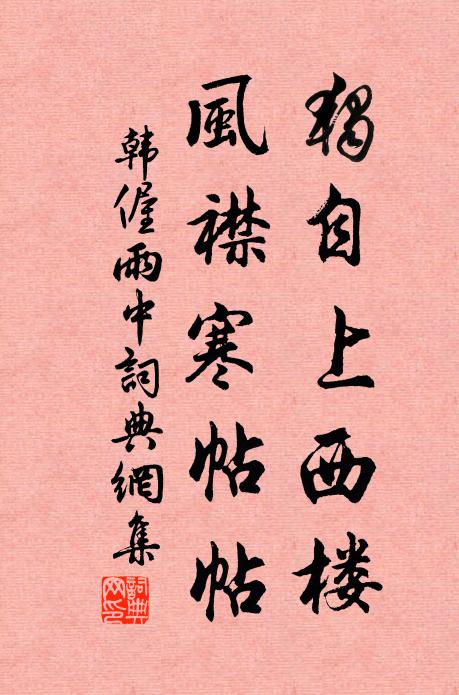 獨自上西楼
風襟寒帖帖
韩偓雨中詞典網集
詞典网印